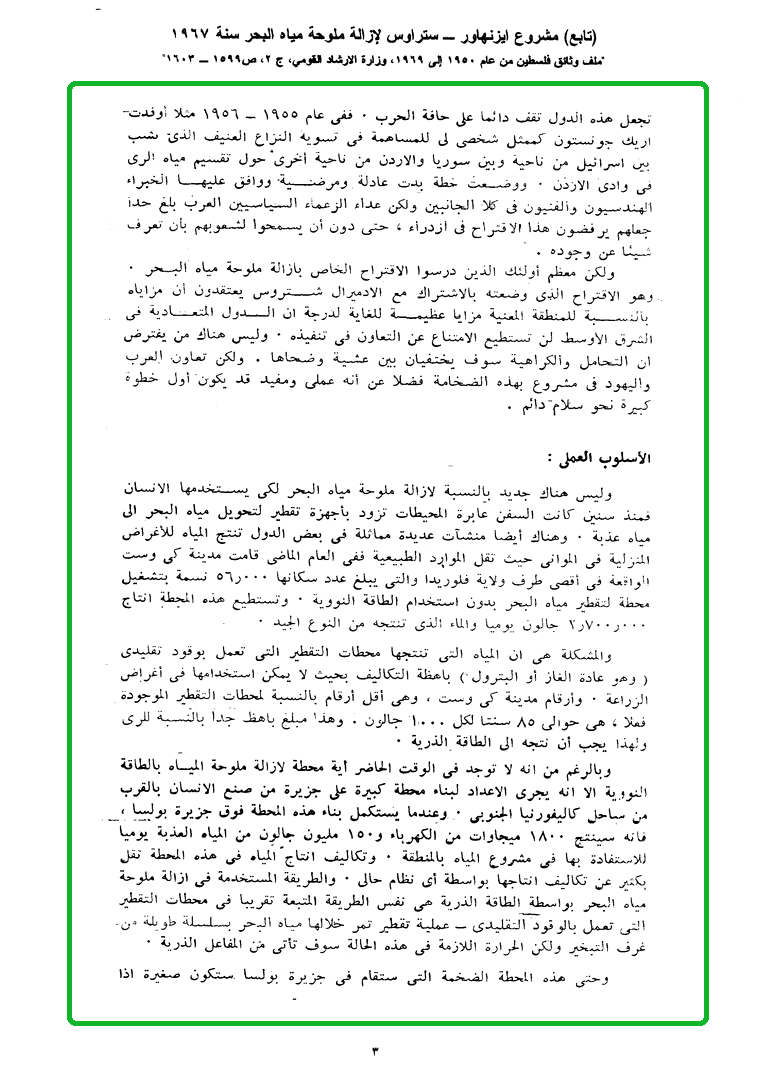 (تابع) مشروع ايزنهاور ــ ستراوس لإزالة ملوحة مياه البحر سنة ١٩٦٧
"ملف وثائق فلسطين من عام ١٩٥٠ إلى ١٩٦٩، وزارة الارشاد القومي، ج ٢، ص١٥٩٩ ــ ١٦٠٣"
تجعل هذه الدول تقف دائما على حافة الحرب ٠ ففى عام ١٩٥٥ ــ ١٩٥٦ مثلا أوفدت
اريك جونستون كممثل شخصى لى للمساهمة فى تسوية النزاع العنيف الذى يشب
بين اسرائيل من ناحية وبين سوريا والاردن من ناحية أخرى حول تقسيم مياه الرى
فى وادى الاردن ٠ ووضعت خطة بدت عادلة ومرضية ووافق عليها الخبراء
الهندسيون والفنيون فى كلا الجانبين ولكن عداء الزعماء السياسيين العرب بلغ حدا
جعلهم يرفضون هذا الاقتراح فى ازدراء ، حتى دون أن يسمحوا لشعوبهم بأن تعرف
شيئا عن وجوده .
ولكن معظم أولئك الذين درسوا الاقتراح الخاص بازالة ملوحة مياه البحر ٠
وهو الاقتراح الذى وضعته بالاشتراك مع الادميرال شتروس يعتقدون أن مزاياه
بالنسبة للمنطقة المعنية مزايا عظيمة للغاية لدرجة ان الدول المتعادية فى
الشرق الأوسط لن تستطيع الامتناع عن التعاون فى تنفيذه ٠ وليس هناك من يفترض
ان التحامل والكراهية سوف يختفيان بين عشية وضحاها . ولكن تعاون العرب
واليهود فى مشروع بهذه الضخامة فضلا عن أنه عملى ومفيد قد يكون أول خطوة
كبيرة نحو سلام دائم .
الأسلوب العملى :
وليس هناك جديد بالنسبة لازالة ملوحة مياه البحر لكى يستخدمها الانسان
فمنذ سنين كانت السفن عابرة المحيطات تزود بأجهزة تقطير لتحويل مياه البحر الى
مياه عذبة ٠ وهناك أيضا منشآت عديدة مماثلة فى بعض الدول تنتج المياه للأغراض
المنزلية فى الموانى حيث تقل الموارد الطبيعية ففى العام الماضى قامت مدينة كى وست
الواقعة فى أقصى طرف ولاية فلوريدا والتى يبلغ عدد سكانها ٥٦٫٠٠٠ نسمة بتشغيل
محطة لتقطير مياه البحر بدون استخدام الطاقة النووية ٠ وتستطيع هذه المحطة انتاج
٢٫٧٠٠٫٠٠٠ جالون يوميا والماء الذى تنتجه من النوع الجيد ٠
والمشكلة هى ان المياه التى تنتجها محطات التقطير التى تعمل بوقود تقليدى
( وهو عادة الغاز أو البترول ) باهظة التكاليف بحيث لا يمكن استخدامها فى أغراض
الزراعة ٠ وأرقام مدينة كى وست ، وهى أقل أرقام بالنسبة لمحطات التقطير الموجودة
فعلا ، هى حوالى ٨٥ سنتا لكل ١٠٠٠ جالون . وهذا مبلغ باهظ جدا بالنسبة للرى
ولهذا يجب أن نتجه الى الطاقة الذرية ٠
وبالرغم من انه لا توجد فى الوقت الحاضر أية محطة لازالة ملوحة المياه بالطاقة
النووية الا انه يجرى الاعداد لبناء محطة كبيرة على جزيرة من صنع الانسان بالقرب
من ساحل كاليفورنيا الجنوبى ٠ وعندما يستكمل بناء هذه المحطة فوق جزيرة بولسا ،
فانه سينتج ١٨٠٠ ميجاوات من الكهرباء و١٥٠ مليون جالون من المياه العذبة يوميا
للاستفادة بها فى مشروع المياه بالمنطقة ٠ وتكاليف انتاج المياه فى هذه المحطة تقل
بكثير عن تكاليف انتاجها بواسطة أى نظام حالى ٠ والطريقة المستخدمة فى ازالة ملوحة
مياه البحر بواسطة الطاقة الذرية هى نفس الطريقة المتبعة تقريبا فى محطات التقطير
التى تعمل بالوقود التقليدى ــ عملية تقطير تمر خلالها مياه البحر بسلسلة طويلة من
غرف التبخير ولكن الحرارة اللازمة فى هذه الحالة سوف تأتى من المفاعل الذرية ٠
وحتى هذه المحطة الضخمة التى ستقام فى جزيرة بولسا ستكون صغيرة اذا
٣